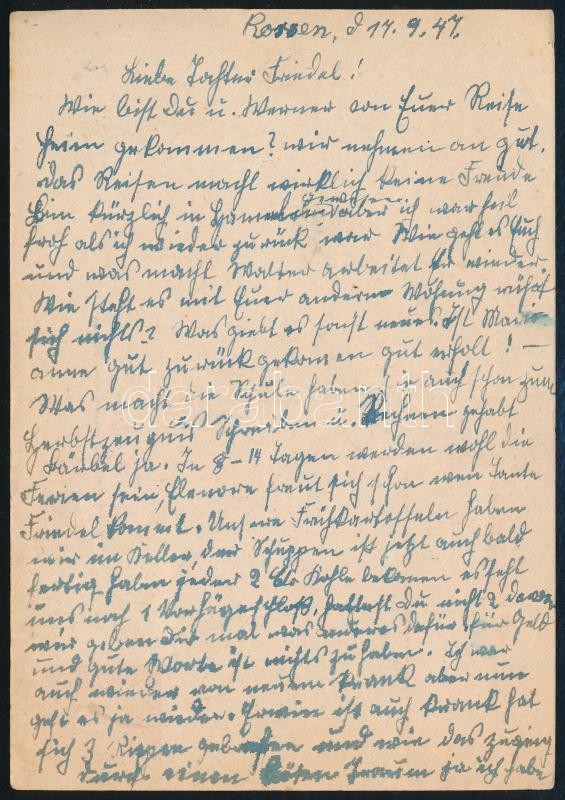 Rossen, d 17. 9. 47.
Liebe Tochter Friedel!
Wie bist Du u. Werner von Euer Reise
heim gekommen? wir nehmen an gut.
das Reisen macht wirklich keine Freude
Bin kürzlich in gewesen aber ich war heil
froh als ich wieder zurück war Wie geht es Euch
und was macht Walter arbeitet er wieder,
Wie steht es mit Euer anderen Wohnung rührt
sich nichts? Was giebt es sonst neues. Ist Mari
anne gut zurückgekomen gut erholt! –
Was macht die Schule haben ja auch schon zum
Herbstzeugnis Schreiben u. Rechnen gehabt
Bärbel ja. In 8–14 Tagen werden wohl die
Ferien sein, Elenore freut sich schon wen Tante
Friedel komt. Unsere Frühkartoffeln haben
wir im Keller, der Schuppen ist jetzt auch bald
fertig haben jeder 2 Kohle bekomen es fehlt
uns noch 1 Vorhägeschloß, hattest Du nicht 2 davon
wir geben Dir mal was anderes dafür für Geld
und gute Worte ist nichts zu haben. Ich war
auch wieder von neuem krank aber nun
geht es ja wieder. Erwin ist auch krank hat
sich 3 Rippen gebrochen und wie das zuging
durch einen bösen Traum ja ich habe
darabanth